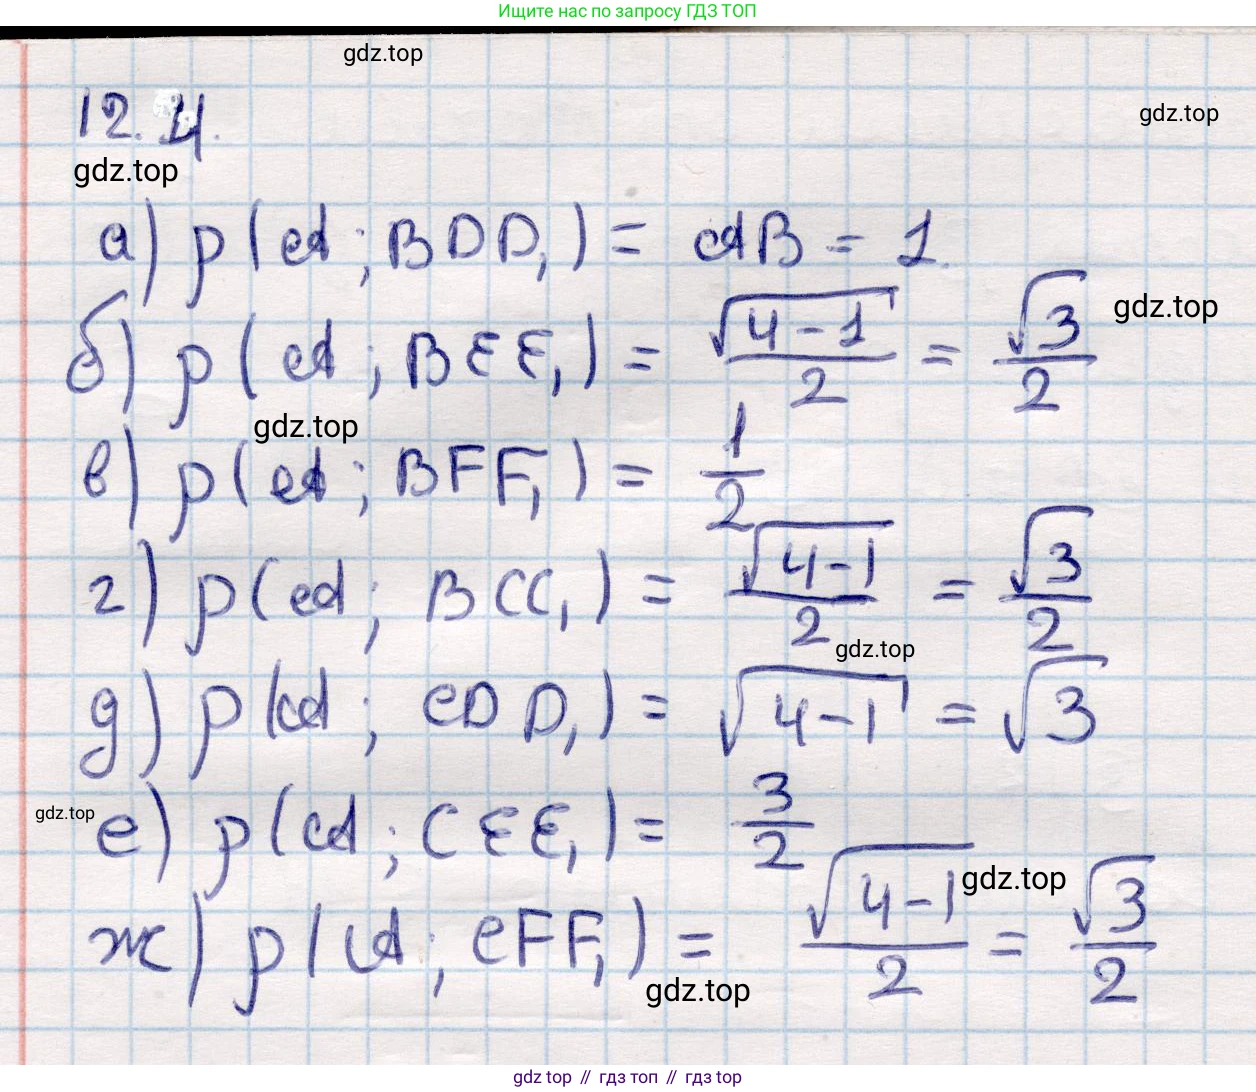 Ищите нас по запросу ГДЗ ТОП
gdz.top
12.4.
gdz.top
gdz.top
а) p(A; BDD₁) = AB = 1.
б) p(A; BEE₁) = √(4-1)/2 = √3/2
gdz.top
gdz.top
в) p(A; BFF₁) = 1/2
г) p(A; BCC₁) = √(4-1)/2 = √3/2
gdz.top
д) p(A; CDD₁) = √(4-1) = √3
gdz.top
е) p(A; CEE₁) = 3/2
gdz.top
ж) p(A; CFF₁) = √(4-1)/2 = √3/2
gdz.top
gdz top // гдз топ // гдз top